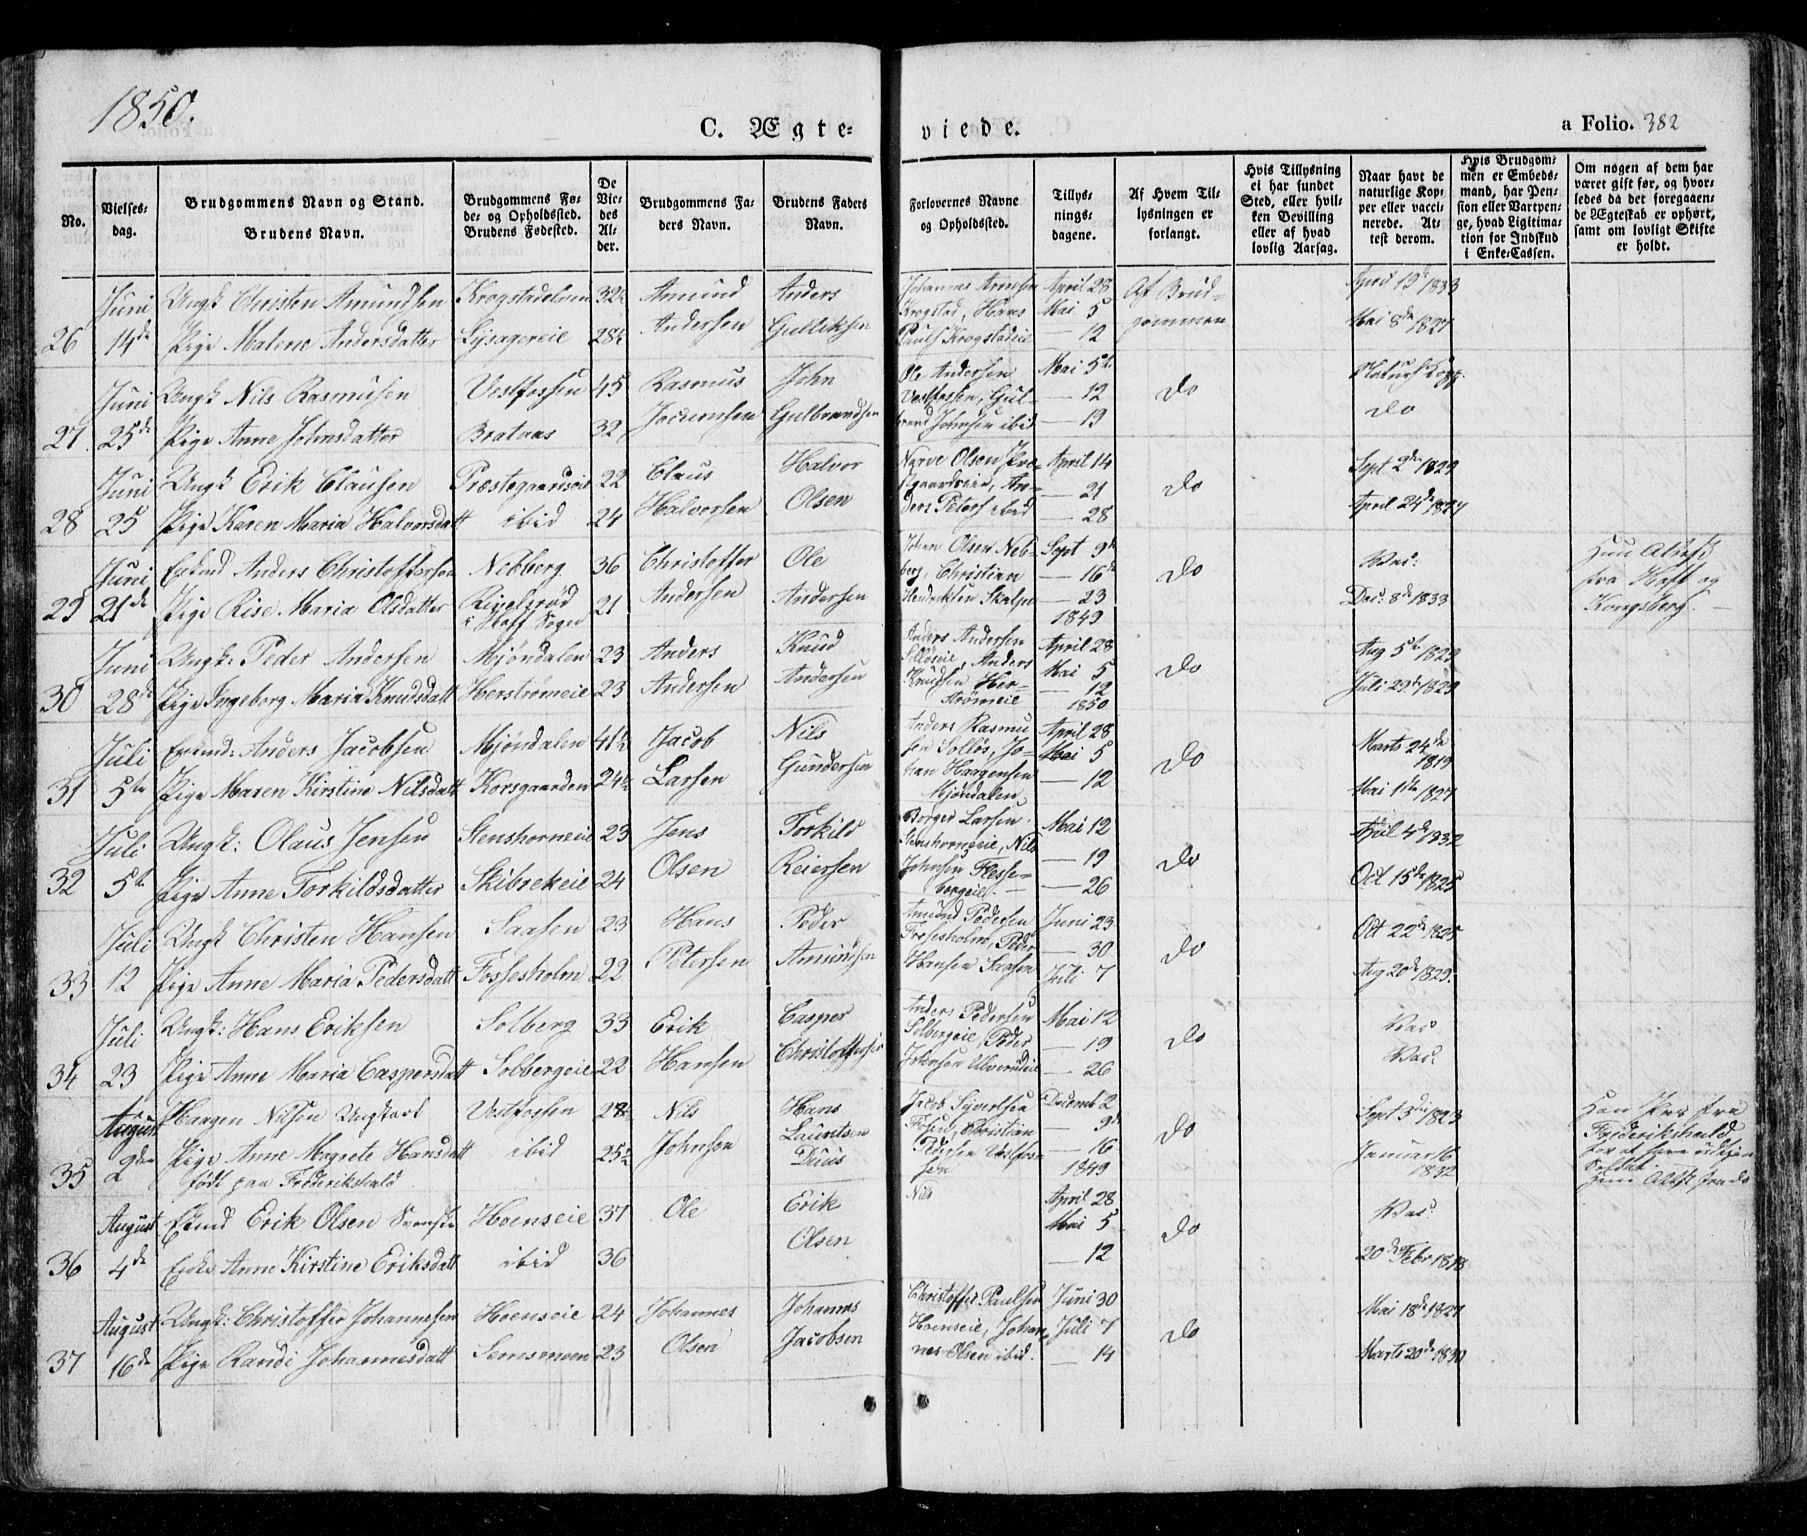 1850.
C. Ægte=
viede.
a Folio. 382
No.
Vielses-
dag.
Brudgommens Navn og Stand.
Brudens Navn.
Brudgommens Fø-
de- og Opholdssted.
Brudens Fødested.
De
Vie-
des
Al-
der.
Brudgommens Fa-
ders Navn.
Brudens Faders
Navn.
Forlovernes Navne
og Opholdssted.
Tillys-
nings-
dagene.
Af Hvem Til-
lysningen er
forlangt.
Hvis Tillysning
ei har fundet
Sted, eller hvil-
ken Bevilling
eller af hvad
lovlig Aarsag.
Naar havt de
naturlige Kop-
per eller vacci-
nerede. At-
test derom.
Hvis Brudgom-
men er Embeds-
mand, har Pen-
sion eller Vartpen-
ge, hvad Ligitima-
tion for Indskud
i Enke-Cassen.
Om nogen af dem har
været gift før, og hvor-
ledes da det foregaaen-
de Ægteskab er ophørt,
samt om lovligt Skifte
er holdt.
Juni Ungk Christen Amundsen Krogstadelven 32 Amund Anders Johannes Arnesen April 28 Af Brud- April 19 1833
Krogstad, Hans Mai 5
26 14de Pige Malene Andersdatter 28 Andersen Gulliksen Pauls Krogstadeie — 12 gommen Mai 8de 1827
Juni Ungk Nils Rasmusen Vestfossen 45 Rasmus John Ole Andersen Mai 5te Naturl Kopp.
Vestfossen, Gul- — 12 do
27 25de Pige Anne Johnsdatter Brataas 32 Jocumsen Gulbrandsen brand Johnsen ibid — 19 do
Juni Ungk Erik Clausen Præstegaardseie 22 Claus Halvor Narve Olsen Præ- April 14 Sept 2de 1829
stgaardseie, An- — 21 do
28 25 Pige Karen Maria Halvorsdatt ibid 24 Halvorsen Olsen ders Peters ibid — 28 April 24de
Juni Enkmd Anders Christoffersen Nebberg 36 Christoffer Ole Johan Olsen Neb- Sept 9de Vac: Hun Attest
berg, Christian — 16de do fra Haff og
29 21de Pige Rise Maria Olsdatter 21 Andersen Andersen Hendriksen — 23 Dec: 8de 1833 Kongsberg. —
i Haff Sogn 1849
Juni Ungk: Peder Andersen Mjøndalen 23 Anders Knud Anders Andersen April 28 Aug 5te 1829
Solløseie, Anders Mai 5 do
30 28de Pige Ingeborg Maria Knudsdatt Herstrømeie 23 Andersen Andersen Knudsen Her- — 12 Juli 29de 1829
strømeie 1850
Juli Enkmd: Anders Jacobsen Mjøndalen 41½ Jacob Nils Anders Rasmu April 28 Marts 24de
sen Solløs, Jo- Mai 5 do 1819
31 5te Pige Maren Kirstine Nilsdatt Korsgaarden 24½ Larsen Gundersen han Haagensen — 12 Mai 11te 1827
Mjøndalen
Juli Ungk: Olaus Jensen Stenshorneie 23 Jens Torkild Borger Larsen Mai 12 April 4de 1832
Stenshorneie, Nils — 19 do
32 5te Pige Anne Torkildsdatter Skibrekeie 24 Olsen Reiersen Johnsen Flesse- — 26 Oct 15de 1825
bergeie. —
Juli Ungk Christen Hansen Saasen 23 Hans Peder Amund Pedersen Juni 23 Oct 22de 1825
Fossesholm, Peder — 30 do
33 12 Pige Anne Maria Pedersdatt Fossesholm 22 Petersen Amundsen Hansen Saasen Juli 7 Aug 20de 1829.
Juli Ungk: Hans Eriksen Solberg 33 Erik Casper Anders Pedersen Mai 12 Vac
Solbergeie, Peder — 19 do
34 23 Pige Anne Maria Caspersdatt Solbergeie 22 Hansen Christoffersen Johnsen Ulverudeie — 26 Vac:
August Haagen Nilsen Ungkarl Vestfossen 28 Nils Hans Jacob Syvertsen Decemb 2 Sept 3die 1823 Han Pas fra
Lauritsen Christian — 9de do Friderikshald
35 2den Pige Anne Magrete Hansdatt ibid 25½ Johnsen Duus Pedersen Vestfos- — 16 Januar 16
født paa Frederikshald sen 1849 1832 Soldat.
Hun Attst fra do
August Enkmd Erik Olsen Svensk Hoenseie 37 Ole Erik Nils April 28 Vac:
Mai 5 do
36 4de Enke Anne Kirstine Eriksdatt ibid 36 Olsen — 12 20de Febr 1818
August Ungk: Christoffer Johannesen Hoenseie 24 Johannes Johannes Christoffer Paulsen Juni 30 Mai 18de 1827
Hoenseie, Johan- Juli 7 do
37 16de Pige Randi Johannesdatt Semsmoen 23 Olsen Jacobsen nes Olsen ibid. — 14 Marts 20de 1830